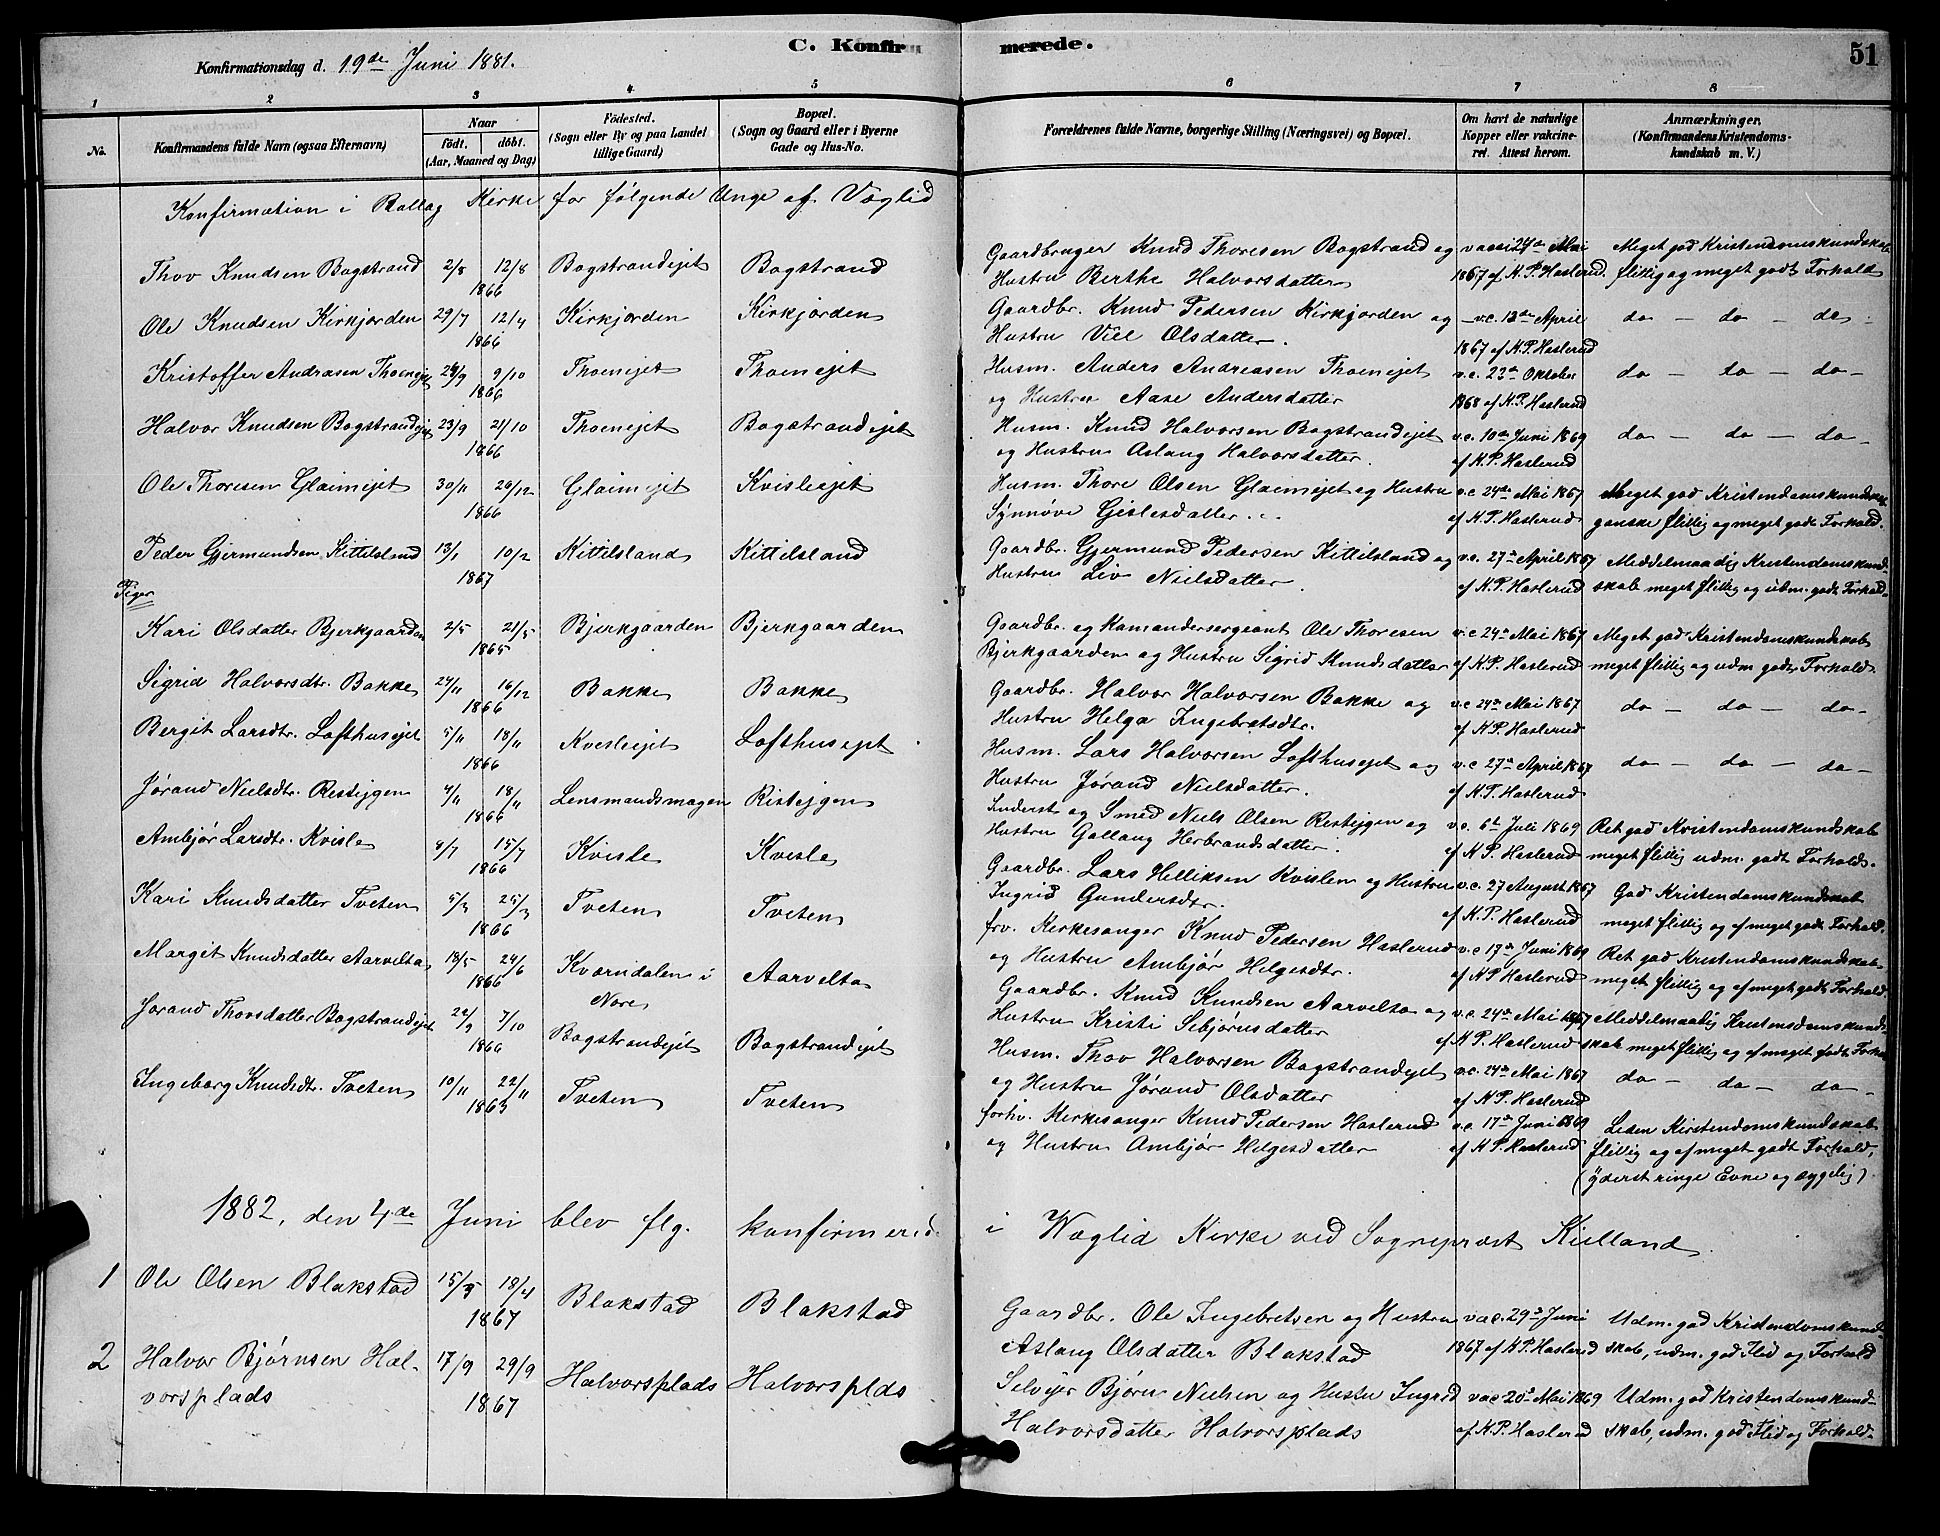 C. Konfirmerede.
51
Konfirmationsdag d. 19de Juni 1881.
1 2 3 4 5 6 7 8
No.
Konfirmandens fulde Navn (ogsaa Efternavn)
Naar
födt. döbt.
(Aar, Maaned og Dag)
Födested.
(Sogn eller By og paa Landet
tillige Gaard)
Bopæl.
(Sogn og Gaard eller i Byerne
Gade og Hus-No.
Forældrenes fulde Navne, borgerlige Stilling (Næringsvei) og Bopæl.
Om havt de naturlige
Kopper eller vakcine-
ret. Attest herom.
Anmærkninger.
(Konfirmandens Kristendoms-
kundskab m. V.)
Konfirmation i Rollag Kirke for følgende Unge af Væglid
Thov Knudsen Bogstrand 2/8 12/8 1866 Bogstrandejet Bogstrand
Gaardbruger Knud Thoresen Bogstrand og
Hustru Berthe Halvorsdatter
vacci 24de Mai
1867 af K.P. Haslerud.
Meget god Kristendomskundskab
flittig og meget godt Forhold
Ole Knudsen Kirkjorden 29/7 12/4 1866 Kirkjorden Kirkjorden
Gaardbr. Knud Pedersen Kirkjorden og
Hustru Viel Olsdatter.
v.c. 12de April
1867 af K.P. Haslerud
do – do – do
Kristoffer Andrasen Thoenejet 24/9 9/10 1866 Thoenejet Thoenejet
Husm. Anders Andreasen Thoenejet
og Hustru Aase Andersdatter
v.c. 23de Oktober
1868 af K.P. Haslerud
do – do – do –
Halvor Knudsen Bogstrandejet 23/9 21/10 1866 Thoenejet Bogstrandejet
Husm. Knud Halvorsen Bogstrandejet
og Hustru Aslaug Halvorsdatter.
v.c. 10de Juni 1869
af K.P. Haslerud
do – do – do –
Ole Thoresen Glaimejet 30/11 26/12 1866 Glaimejet Kvisleejet
Husm. Thore Olsen Glaimejet og Hustru
Synnøve Gislesdatter.
v.c 24de Mai 1867
af K.P. Haslerud
Meget god Kristendomskundskab
ganske flittig og meget godt Forhold.
Peder Gjermundsen Kittilsland 13/1 10/2 1867 Kittilsland Kittilsland
Gaardbr. Gjermund Pedersen Kittilsland og
Hustru Liv Nielsdatter.
v.c. 27de April 1867
af K.P. Haslerud
Meddelmaadig Kristendomskund-
skab meget flittig og udm. godt Forhold.
Piger
Kari Olsdatter Bjerkgaarden 2/5 21/5 1865 Bjerkgaarden Bjerkgaarden
Gaardbr. og Komandersergeant Ole Thoresen
Bjerkgaarden og Hustru Sigrid Knudsdatter
v.c 24de Mai 1867
af K.P. Haslerud
Meget god Kristendomskundskab
meget flittig og udm. godt Forhold.
Sigrid Halvorsdtr. Bakke 24/11 16/12 1866 Bakke Bakke
Gaardbr. Halvor Halvorsen Bakke og
Hustru Helga Ingebretsdtr.
v.c 24de Mai 1867
af K.P. Haslerud
do – do – do –
Bergit Larsdtr. Lofthusejet 5/11 18/11 1866 Kvesleejet Lofthusejet
Husm. Lars Halvorsen Lofthusejet og
Hustru Jørand Nielsdatter.
v.c 27de April 1867
af K.P. Haslerud
do – do – do –
Jørand Nielsdtr. Restejgen 4/11 18/11 1866 Lensmandsmogen Ristejgen
Inderst og Smed Niels Olsen Restejgen og
Hustru Gollaug Herbrandsdatter.
v.c. 6te Juli 1869
af K.P. Haslerud
Ret god Kristendomskundskab
meget flittig udm. godt Forhold.
Ambjør Larsdtr. Kvisle 4/7 15/7 1866 Kvisle Kvisle
Gaardbr. Lars Helliksen Kvislen og Hustru
Ingrid Gundersdtr.
v.c. 27 August 1867
af K.P. Haslerud
God Kristendomskundskab
meget flittig og af meget godt Forhold.
Kari Knudsdatter Tveten 5/3 25/3 1866 Tveten Tveten
frv. Kirkesanger Knud Pedersen Haslerud
og Hustru Ambjør Helgesdtr.
v.c. 17de Juni 1869
af K.P. Haslerud
Ret god Kristendomskundskab
meget flittig og af meget godt Forhold.
Margit Knudsdatter Aarvelta 18/5 24/6 1866 Kværndalen i Nore Aarvelta
Gaardbr. Knud Knudsen Aarvelta og
Hustru Kristi Sebjørnsdatter
v.c. 24de Mai 1867
af K.P. Haslerud
Meddelmaadig Kristendomskund-
skab meget flittig og af meget godt Forhold
Jørand Thovsdatter Bogstrandejet 22/9 7/10 1866 Bogstrandejet Bogstrandejet
Husm. Thov Halvorsen Bogstrandejet
og Hustru Jørand Olsdatter
v.c. 24de Mai 1867
af K.P. Haslerud
do – do – do –
Ingeborg Knudsdtr. Tveten 10/11 22/11 1863 Tveten Tveten
forhv. Kirkesanger Knud Pedersen Haslerud
og Hustru Ambjør Helgesdatter
v.c. 17de Juni 1869
af K.P. Haslerud
Liden Kirstendomskundskab
flittig og af meget godt Forhold,
(yderst ringe Evne og sygelig)
1882, den 4de Juni blev flg. konfirmered. i Væglid Kirke ved Sogneprest Kielland.
1 Ole Olsen Blakstad 15/3 18/4 1867 Blakstad Blakstad
Gaardbr. Ole Ingebretsen og Hustru
Aslaug Olsdatter Blakstad
vac. 29de Juni
1867 af K.P. Haslerud
Udm. god Kristendomskund-
skab, udm. god Flid og Forhold
2 Halvor Bjørnsen Hal-
vorsplads 17/9 29/9 1867 Halvorsplads Halvorsplds
Selvejer Bjørn Nielsen og Hustu Ingrid
Halvorsdatter Halvorsplads
vac 20de Mai 1869
af K.P. Haslerud
Udm. god Kristendomskund-
skab, udm. god Flid og Forhold.